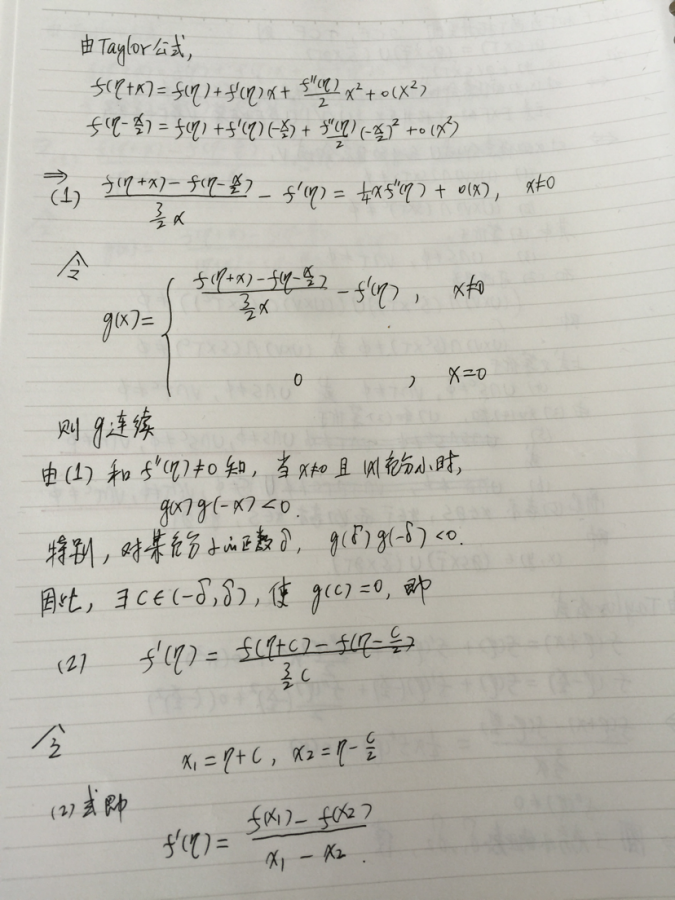 由Taylor公式,
f(η+x)=f(η)+f'(η)x+\frac{f''(η)}{2}x²+o(x²)
f(η-\frac{x}{2})=f(η)+f'(η)(-\frac{x}{2})+\frac{f''(η)}{2}(-\frac{x}{2})²+o(x²)
⇒
(1) \frac{f(η+x)-f(η-\frac{x}{2})}{\frac{3}{2}x}-f'(η)=\frac{1}{4}xf''(η)+o(x), x≠0
令
g(x)={ \frac{f(η+x)-f(η-\frac{x}{2})}{\frac{3}{2}x}-f'(η), x≠0
0, x=0
则g连续
由(1)和f''(η)≠0知,当x≠0且|x|充分小时,
g(x)g(-x)<0.
特别,对某充分小正数δ, g(δ)g(-δ)<0.
因此,∃c∈(-δ,δ),使 g(c)=0,即
(2) f'(η)=\frac{f(η+c)-f(η-\frac{c}{2})}{\frac{3}{2}c}
令
x₁=η+c, x₂=η-\frac{c}{2}
(2)式即
f'(η)=\frac{f(x₁)-f(x₂)}{x₁-x₂}.